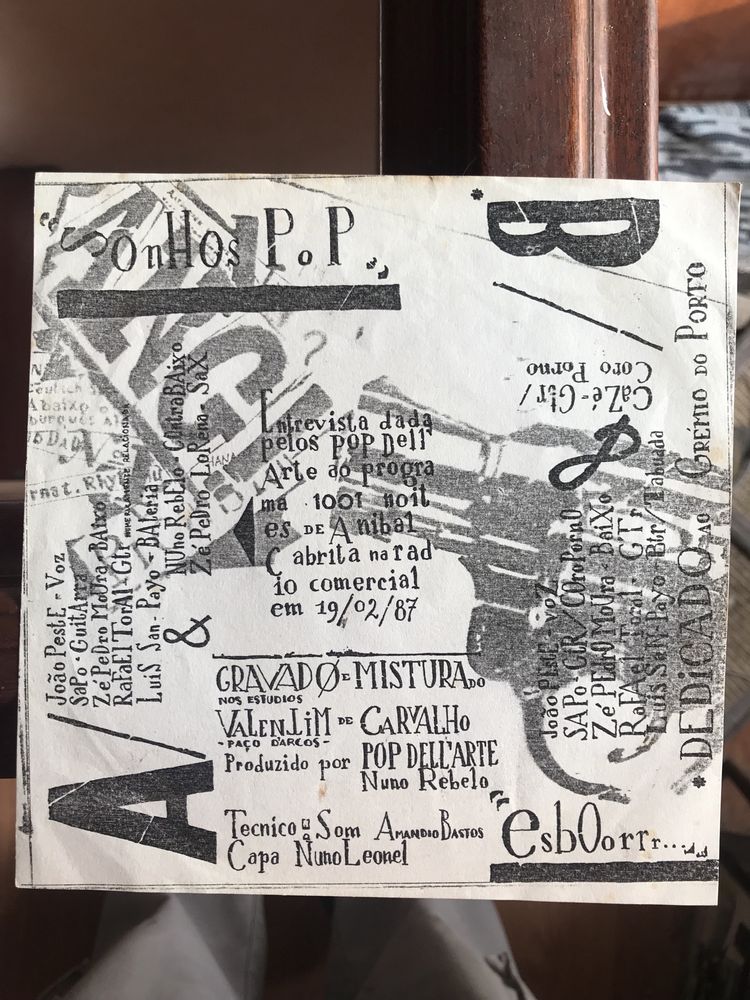 "SOnHOs PoP"
A/
João PestE - Voz
SaPo - GuitArra
Zé PeDro MoUra - BAixo
RaFaEl TorAl - Gtr
LuiS San-Payo - BAteria
&
NUno RebElo - ContraBAixo
Zé PeDro LoRena - SaX
Entrevista dada
pelos POP Dell'
Arte ao progra
ma 1001 noit
es DE Anibal
Cabrita na rad
io comercial
em 19/02/87
GRAVADØ E MISTURADO
NOS ESTUDIOS
VALENTIM DE CARVALHo
- PAÇO D'ARCOS -
Produzido por POP DELL'ARTE
Nuno Rebelo
Tecnico de Som AMANDIO BASTOS
Capa NunoLeonel
"esbOorrr..."
*B/
João PEstE - voZ
SAPo - GtR/COroPornO
Zé PEdrO MoUra - BaiXo
RaFAel Toral - GTr
LUis SaN-PaYo - Btr/Tabuada
&
CaZé - Gtr/
Coro Porno
* DEDiCADO AO GRÉMIO DO PORTO